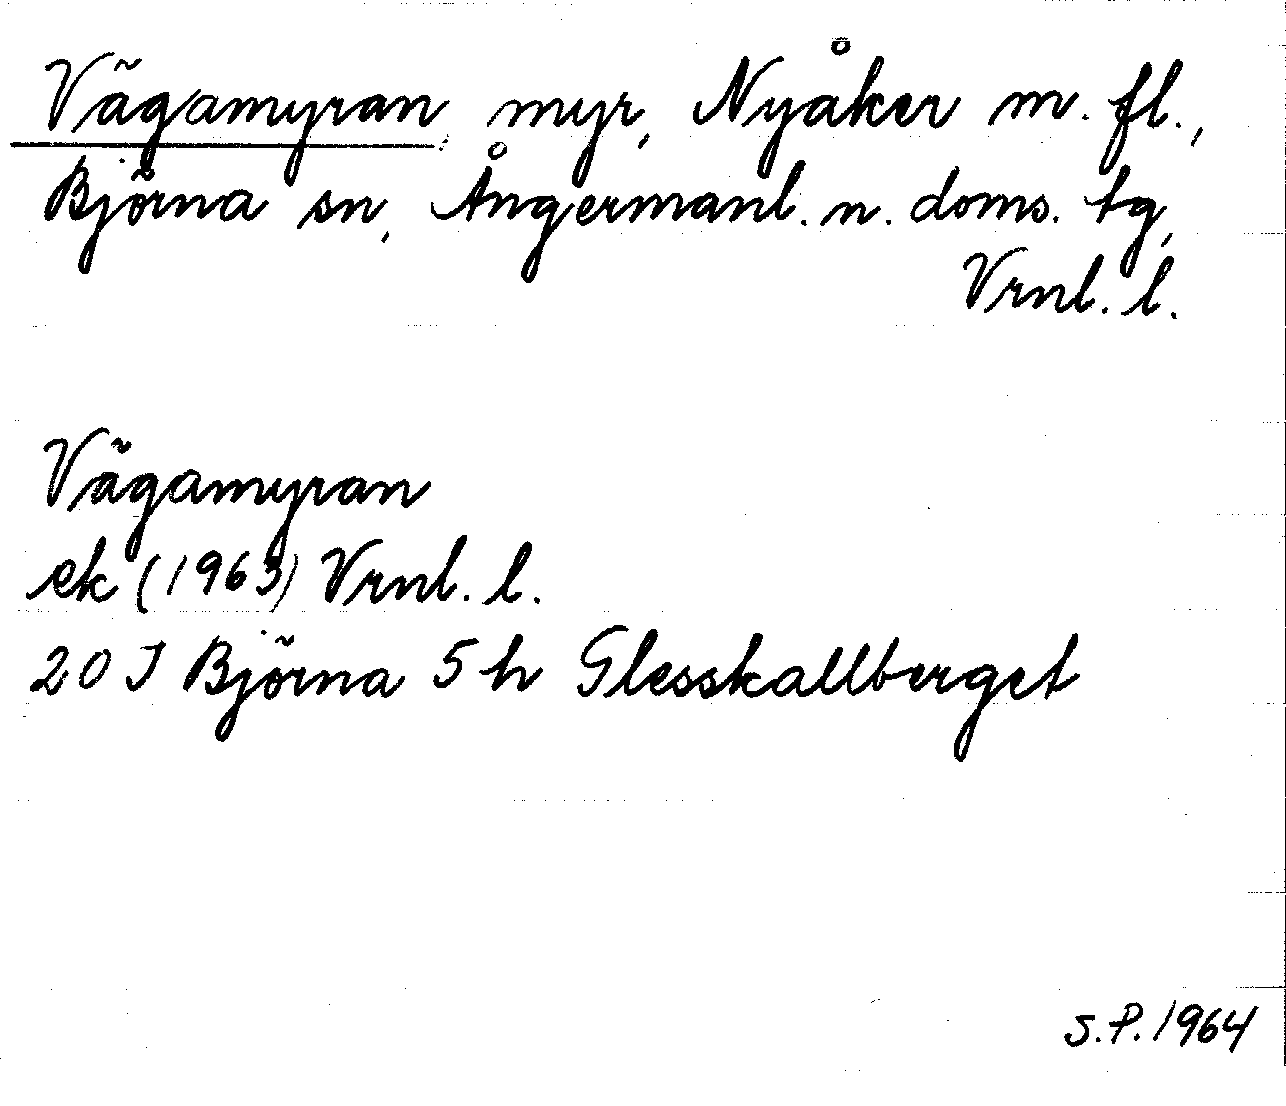 Vägamyran, myr, Nyåker m. fl.,
Björna sn, Ångermanl. n. doms. tg,
Vrnl. l.
Vägamyran
ek (1963) Vrnl. l.
20 J Björna 5 h Glesskallberget
S.P. 1964